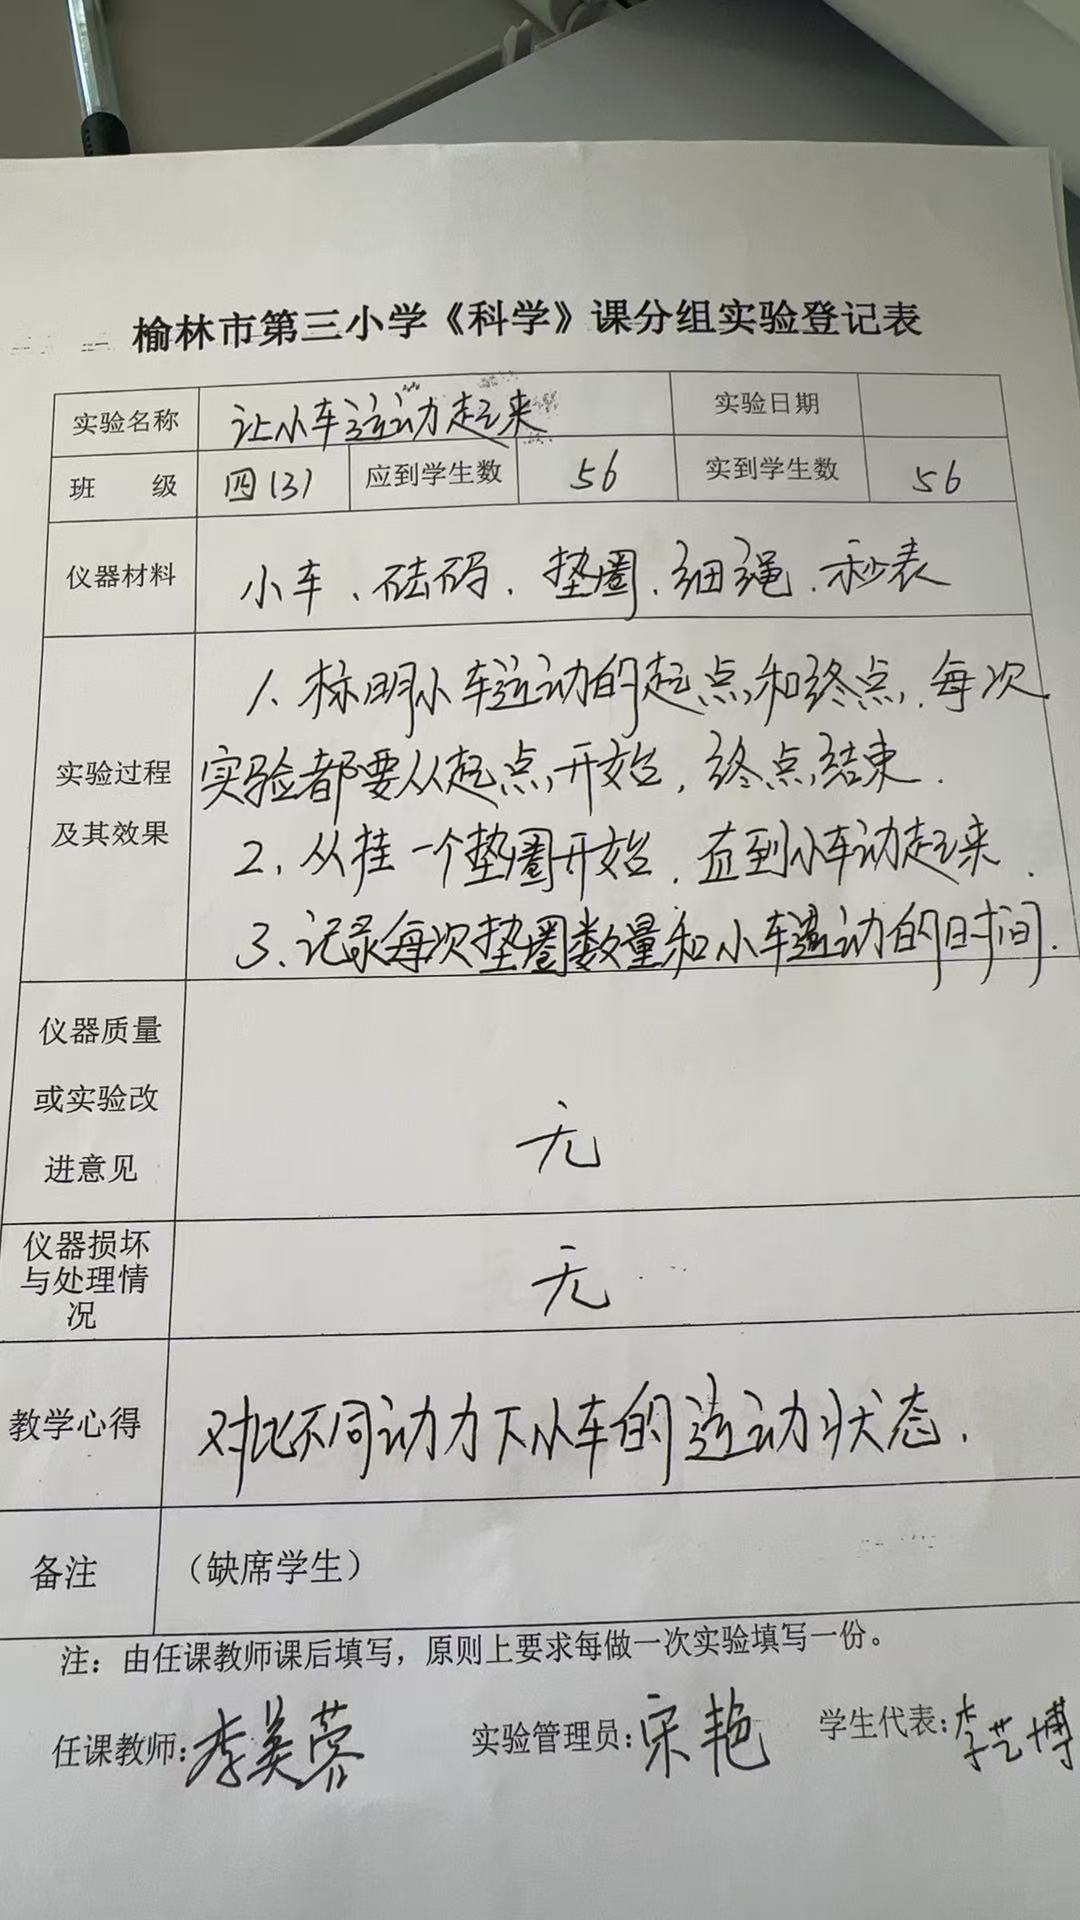 榆林市第三小学《科学》课分组实验登记表
实验名称 让小车运动起来 实验日期
班 级 四(3) 应到学生数 56 实到学生数 56
仪器材料 小车、砝码、垫圈、细绳、秒表
1、标明小车运动的起点和终点,每次
实验过程 实验都要从起点开始,终点结束.
及其效果 2、从挂一个垫圈开始,直到小车动起来.
3、记录每次垫圈数量和小车运动的时间.
仪器质量
或实验改
进意见 无
仪器损坏
与处理情 无
况
教学心得 对比不同动力下小车的运动状态.
备注 (缺席学生)
注:由任课教师课后填写,原则上要求每做一次实验填写一份。
任课教师:李美蓉 实验管理员:宋艳 学生代表:李艺博